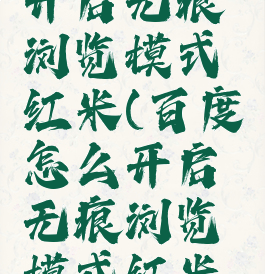 开启无痕
浏览模式
红米(百度
怎么开启
无痕浏览
模式红米